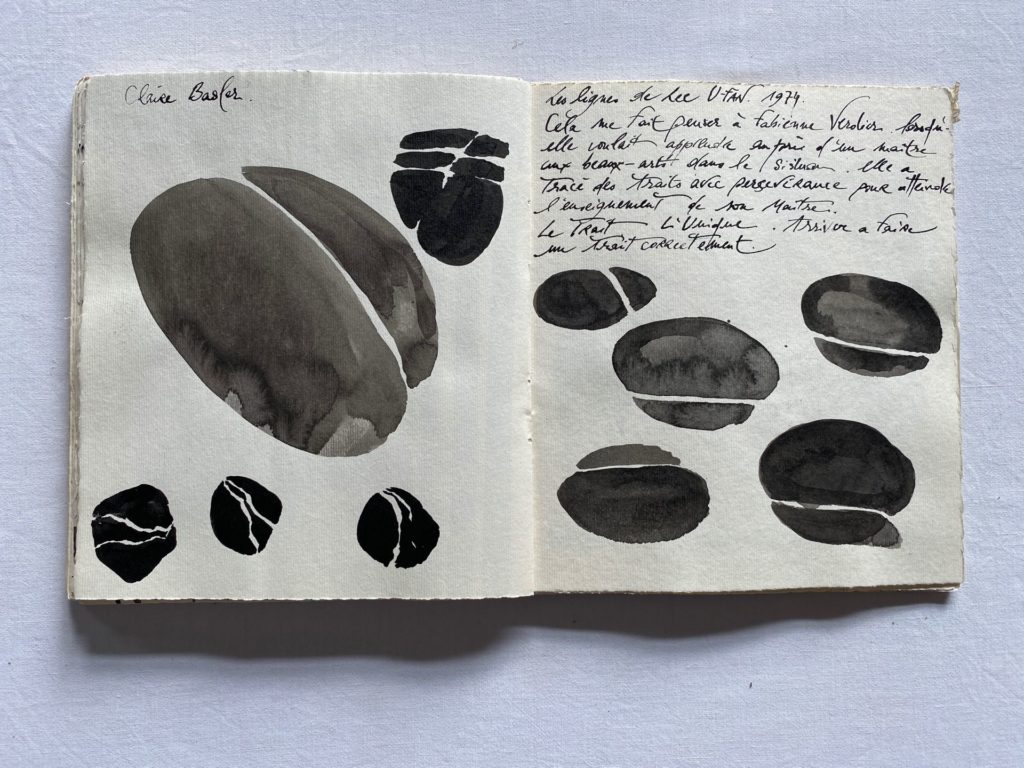 Claire Basler.
Les lignes de Lee U-FAN. 1974.
Cela me fait penser à Fabienne Verdier lorsqu'-
elle voulait apprendre auprès d'un maître
aux beaux-arts dans le Sishuan. elle a
tracé des traits avec perseverance pour attendre
l'enseignement de son Maitre.
Le Trait L'Unique. Arriver a faire
un trait correctement.